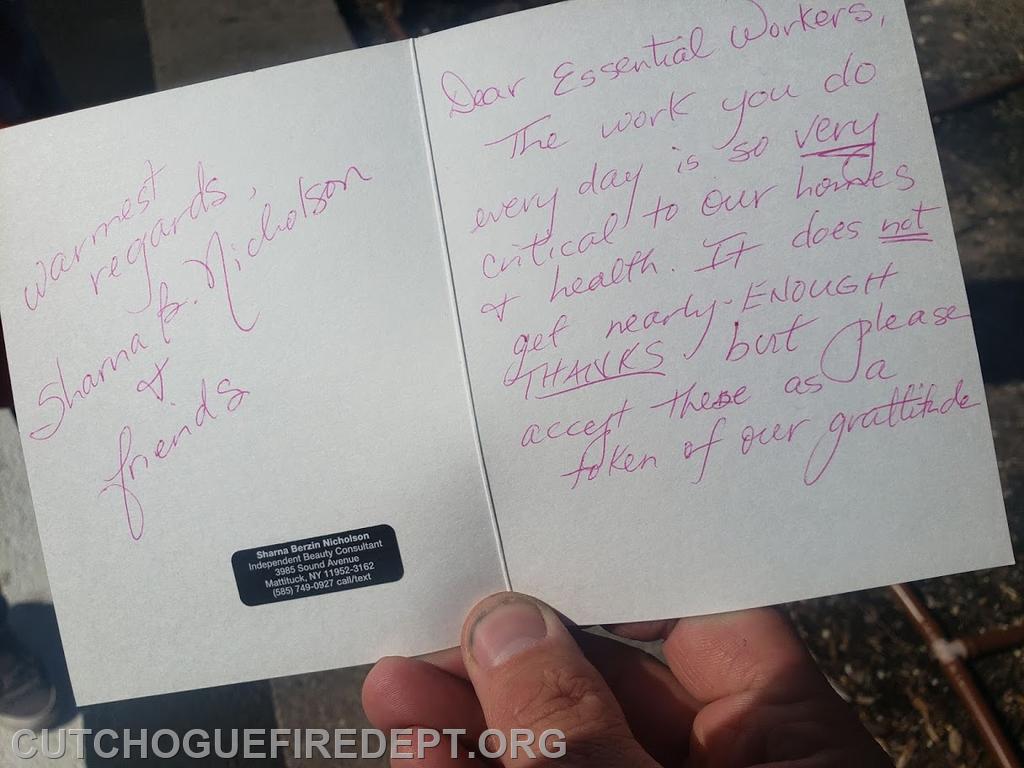 warmest
regards,
Sharna B. Nicholson
&
friends
Sharna Berzin Nicholson
Independent Beauty Consultant
3985 Sound Avenue
Mattituck, NY 11952-3162
(585) 749-0927 call/text
Dear Essential Workers,
The work you do
every day is so very
critical to our homes
& health. It does not
get nearly ENOUGH
THANKS but please
accept these as a
token of our grattitude
CUTCHOGUEFIREDEPT.ORG